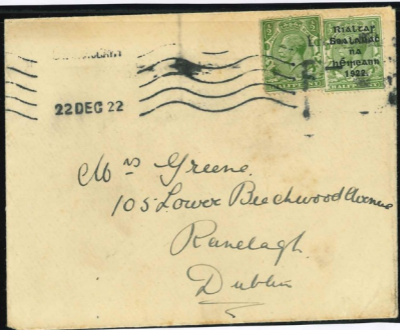 Rialtas
Sealadac
na
hÉireann
1922.
22 DEC 22
Mrs Greene.
105 Lower Beechwood Avenue
Ranelagh
Dublin